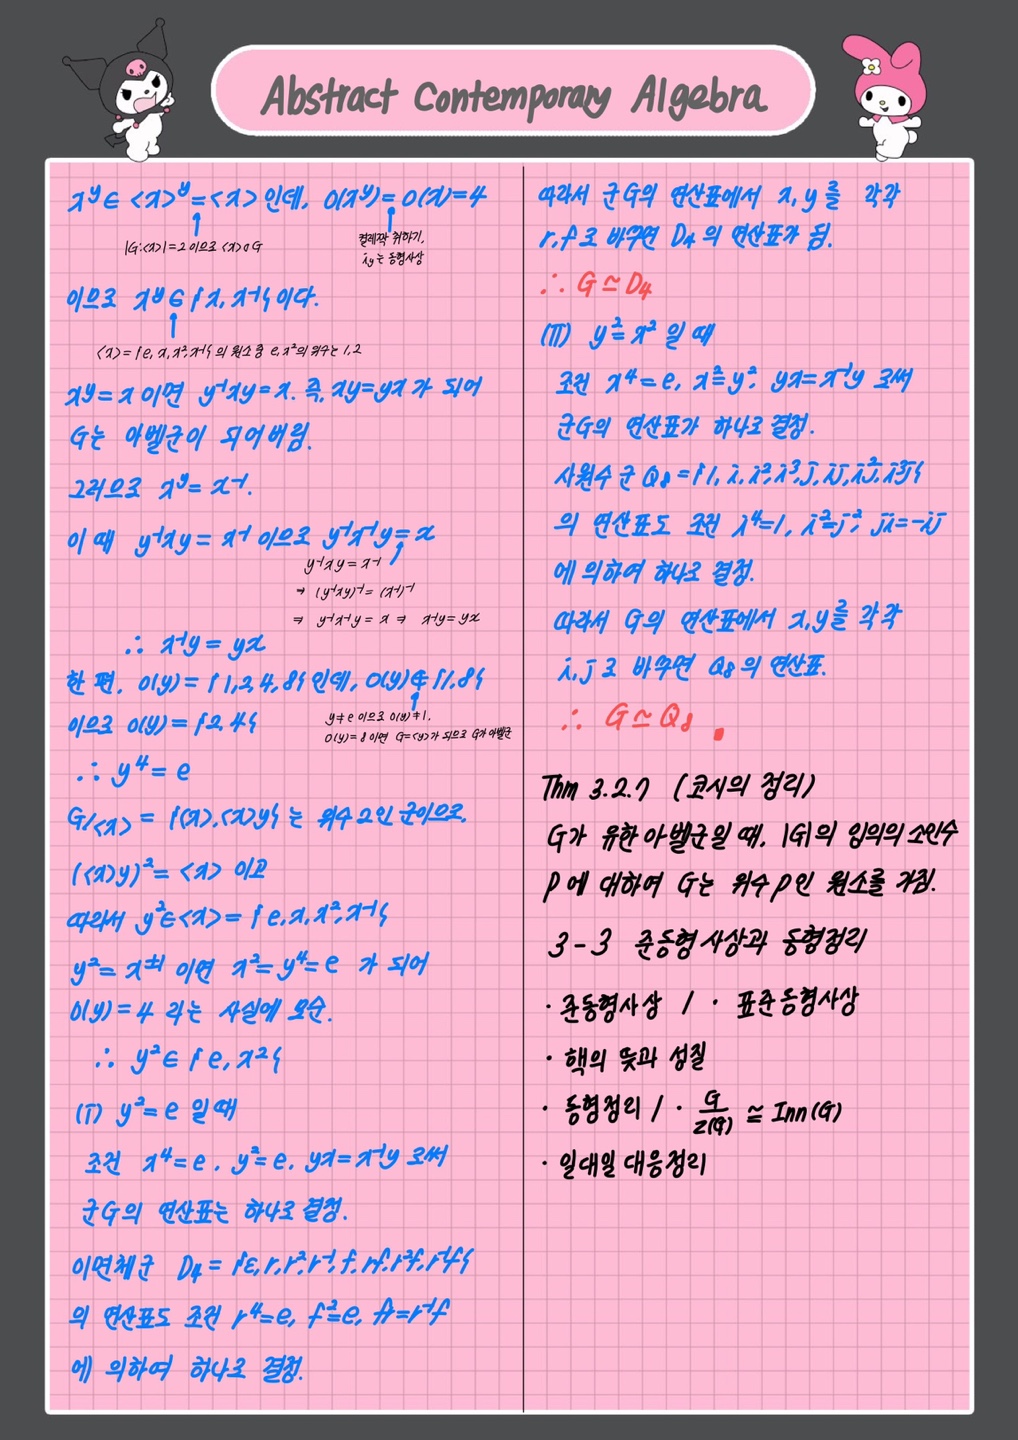 Abstract Contemporary Algebra
x^y ∈ <x>^y = <x> 인데, O(x^y) = O(x) = 4
|G:<x>| = 2 이므로 <x> ◁ G
켤레짝 취하기,
i_y는 동형사상
이므로 x^y ∈ {x, x⁻¹} 이다.
<x> = {e, x, x², x⁻¹} 의 원소 중 e, x²의 위수는 1, 2
x^y = x 이면 y⁻¹xy = x. 즉, xy = yx 가 되어
G는 아벨군이 되어버림.
그러므로 x^y = x⁻¹.
이 때 y⁻¹xy = x⁻¹ 이므로 y⁻¹x⁻¹y = x
y⁻¹xy = x⁻¹
⇒ (y⁻¹xy)⁻¹ = (x⁻¹)⁻¹
⇒ y⁻¹x⁻¹y = x ⇒ x⁻¹y = yx
∴ x⁻¹y = yx
한 편, O(y) = {1, 2, 4, 8} 인데, O(y) ∉ {1, 8}
y ≠ e 이므로 O(y) ≠ 1.
O(y) = 8 이면 G = <y> 가 되므로 G가 아벨군
이므로 O(y) = {2, 4}
∴ y⁴ = e
G/<x> = {<x>, <x>y} 는 위수 2인 군이므로,
(<x>y)² = <x> 이고
따라서 y² ∈ <x> = {e, x, x², x⁻¹}
y² = x^±1 이면 x² = y⁴ = e 가 되어
O(y) = 4 라는 사실에 모순.
∴ y² ∈ {e, x²}
(i) y² = e 일 때
조건 x⁴ = e, y² = e, yx = x⁻¹y 로써
군G의 연산표는 하나로 결정.
이면체군 D₄ = {ε, r, r², r⁻¹, f, rf, r²f, r⁻¹f}
의 연산표도 조건 r⁴ = e, f² = e, fr = r⁻¹f
에 의하여 하나로 결정.
따라서 군 G의 연산표에서 x, y를 각각
r, f로 바꾸면 D₄의 연산표가 됨.
∴ G ≃ D₄
(ii) y² = x² 일 때
조건 x⁴ = e, x² = y², yx = x⁻¹y 로써
군G의 연산표가 하나로 결정.
사원수 군 Q₈ = {1, i, i², i³, j, ij, i²j, i³j}
의 연산표도 조건 i⁴ = 1, i² = j², ji = -ij
에 의하여 하나로 결정.
따라서 G의 연산표에서 x, y를 각각
i, j로 바꾸면 Q₈의 연산표.
∴ G ≃ Q₈ ▪
Thm 3.2.7 (코시의 정리)
G가 유한 아벨군일 때, |G|의 임의의 소인수
p에 대하여 G는 위수 p인 원소를 가짐.
3-3 준동형사상과 동형정리
· 준동형사상 / · 표준동형사상
· 핵의 뜻과 성질
· 동형정리 / · G/Z(G) ≅ Inn(G)
· 일대일 대응정리